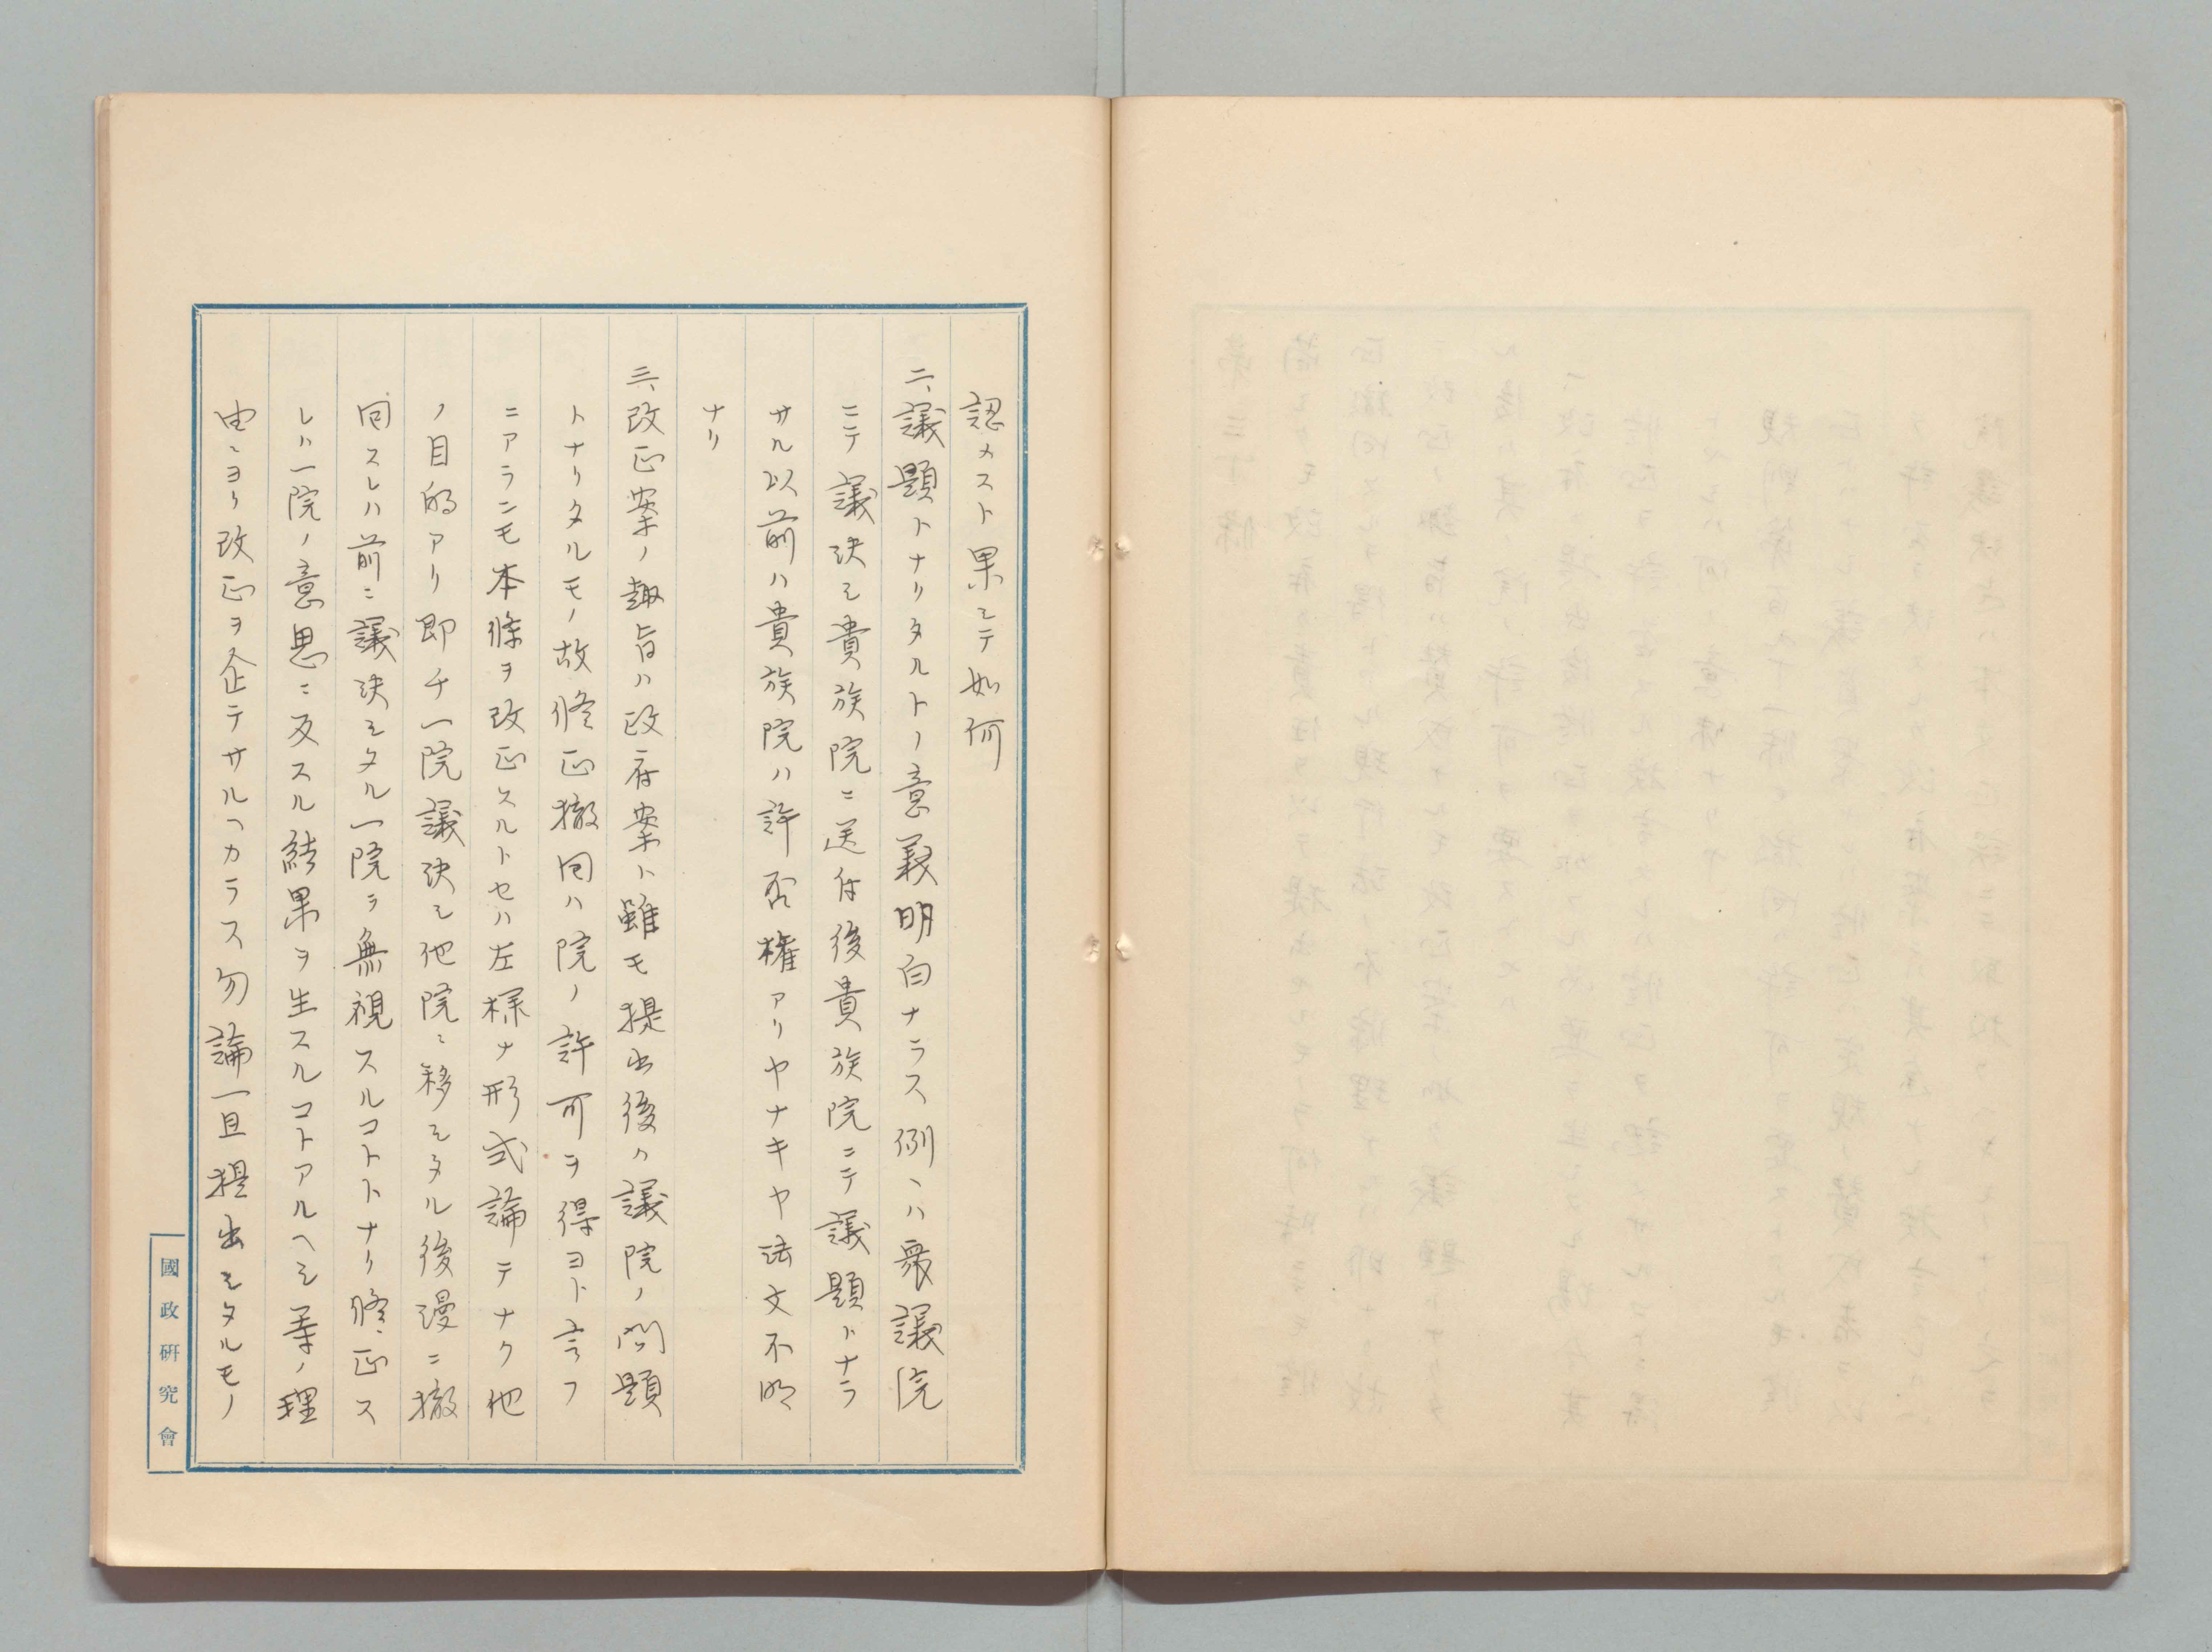 認メスト果シテ如何
二、議題トナリタルトノ意義明白ナラス例ヘハ衆議院
ニテ議決シ貴族院ニ送付後貴族院ニテ議題トナラ
サル以前ハ貴族院ハ許否権アリヤナキヤ法文不明
ナリ
三、改正案ノ趣旨ハ政府案ト雖モ提出後ハ議院ノ問題
トナリタルモノ故修正撤回ハ院ノ許可ヲ得ヨト言フ
ニアランモ本條ヲ改正スルトセハ左様ナ形式論テナク他
ノ目的アリ即チ一院議決シ他院ニ移シタル後漫ニ撤
回スレハ前ニ議決シタル一院ヲ無視スルコトトナリ修正ス
レハ一院ノ意思ニ反スル結果ヲ生スルコトアルヘシ等ノ理
由ニヨリ改正ヲ企テサルヘカラス勿論一旦提出シタルモノ
國政研究會